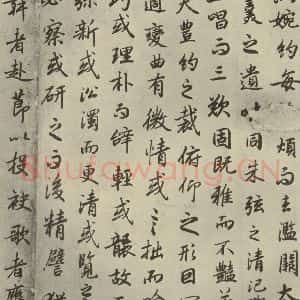 婉約每煩而去濫闕大
羹之遺同朱弦之清汜
一唱而三歎固既雅而不豔
夫豐約之裁俯仰之形因
適變曲有微情或言拙而喻
巧或理朴而辭輕或襲故而
彌新或沿濁而更清或覽之
必察或研之而後精譬猶
舞者赴節以投袂歌者應
Shufawang.CN